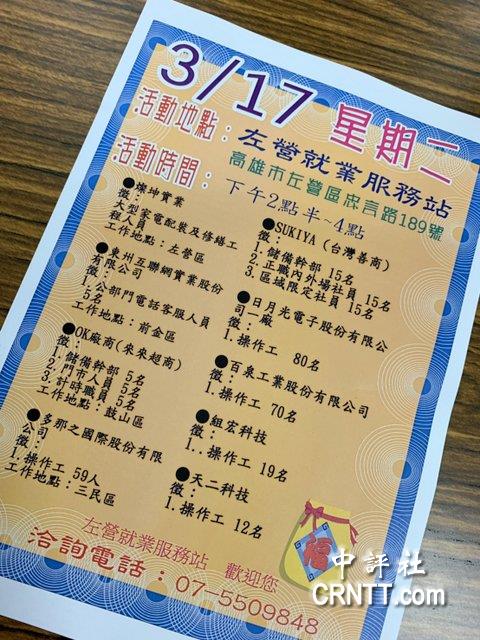 3/17 星期二
活動地點：左營就業服務站
高雄市左營區忠言路189號
活動時間：下午2點半~4點
●燦坤實業
徵：
大型家電配裝及修繕工
程人員
工作地點：左營區
●東州互聯網實業股份
有限公司
徵：
1.公部門電話客服人員
5名
工作地點：前金區
●OK廠商(來來超商)
徵：
1.儲備幹部 5名
2.門市人員 5名
3.計時職員 5名
工作地點：鼓山區
●多那之國際股份有限
公司：
1.操作工 59人
工作地點：三民區
●SUKIYA (台灣善商)
徵：
1.儲備幹部 15名
2.正職內外場社員 15名
3.區域限定社員 15名
●日月光電子股份有限公
司一廠
徵：
1.操作工 80名
●百泉工業股份有限公司
徵：
1.操作工 70名
●組宏科技
徵：
1..操作工 19名
●天二科技
徵：
1.操作工 12名
福
左營就業服務站 歡迎您
洽詢電話：07-5509848
中評社
CRNTT.com